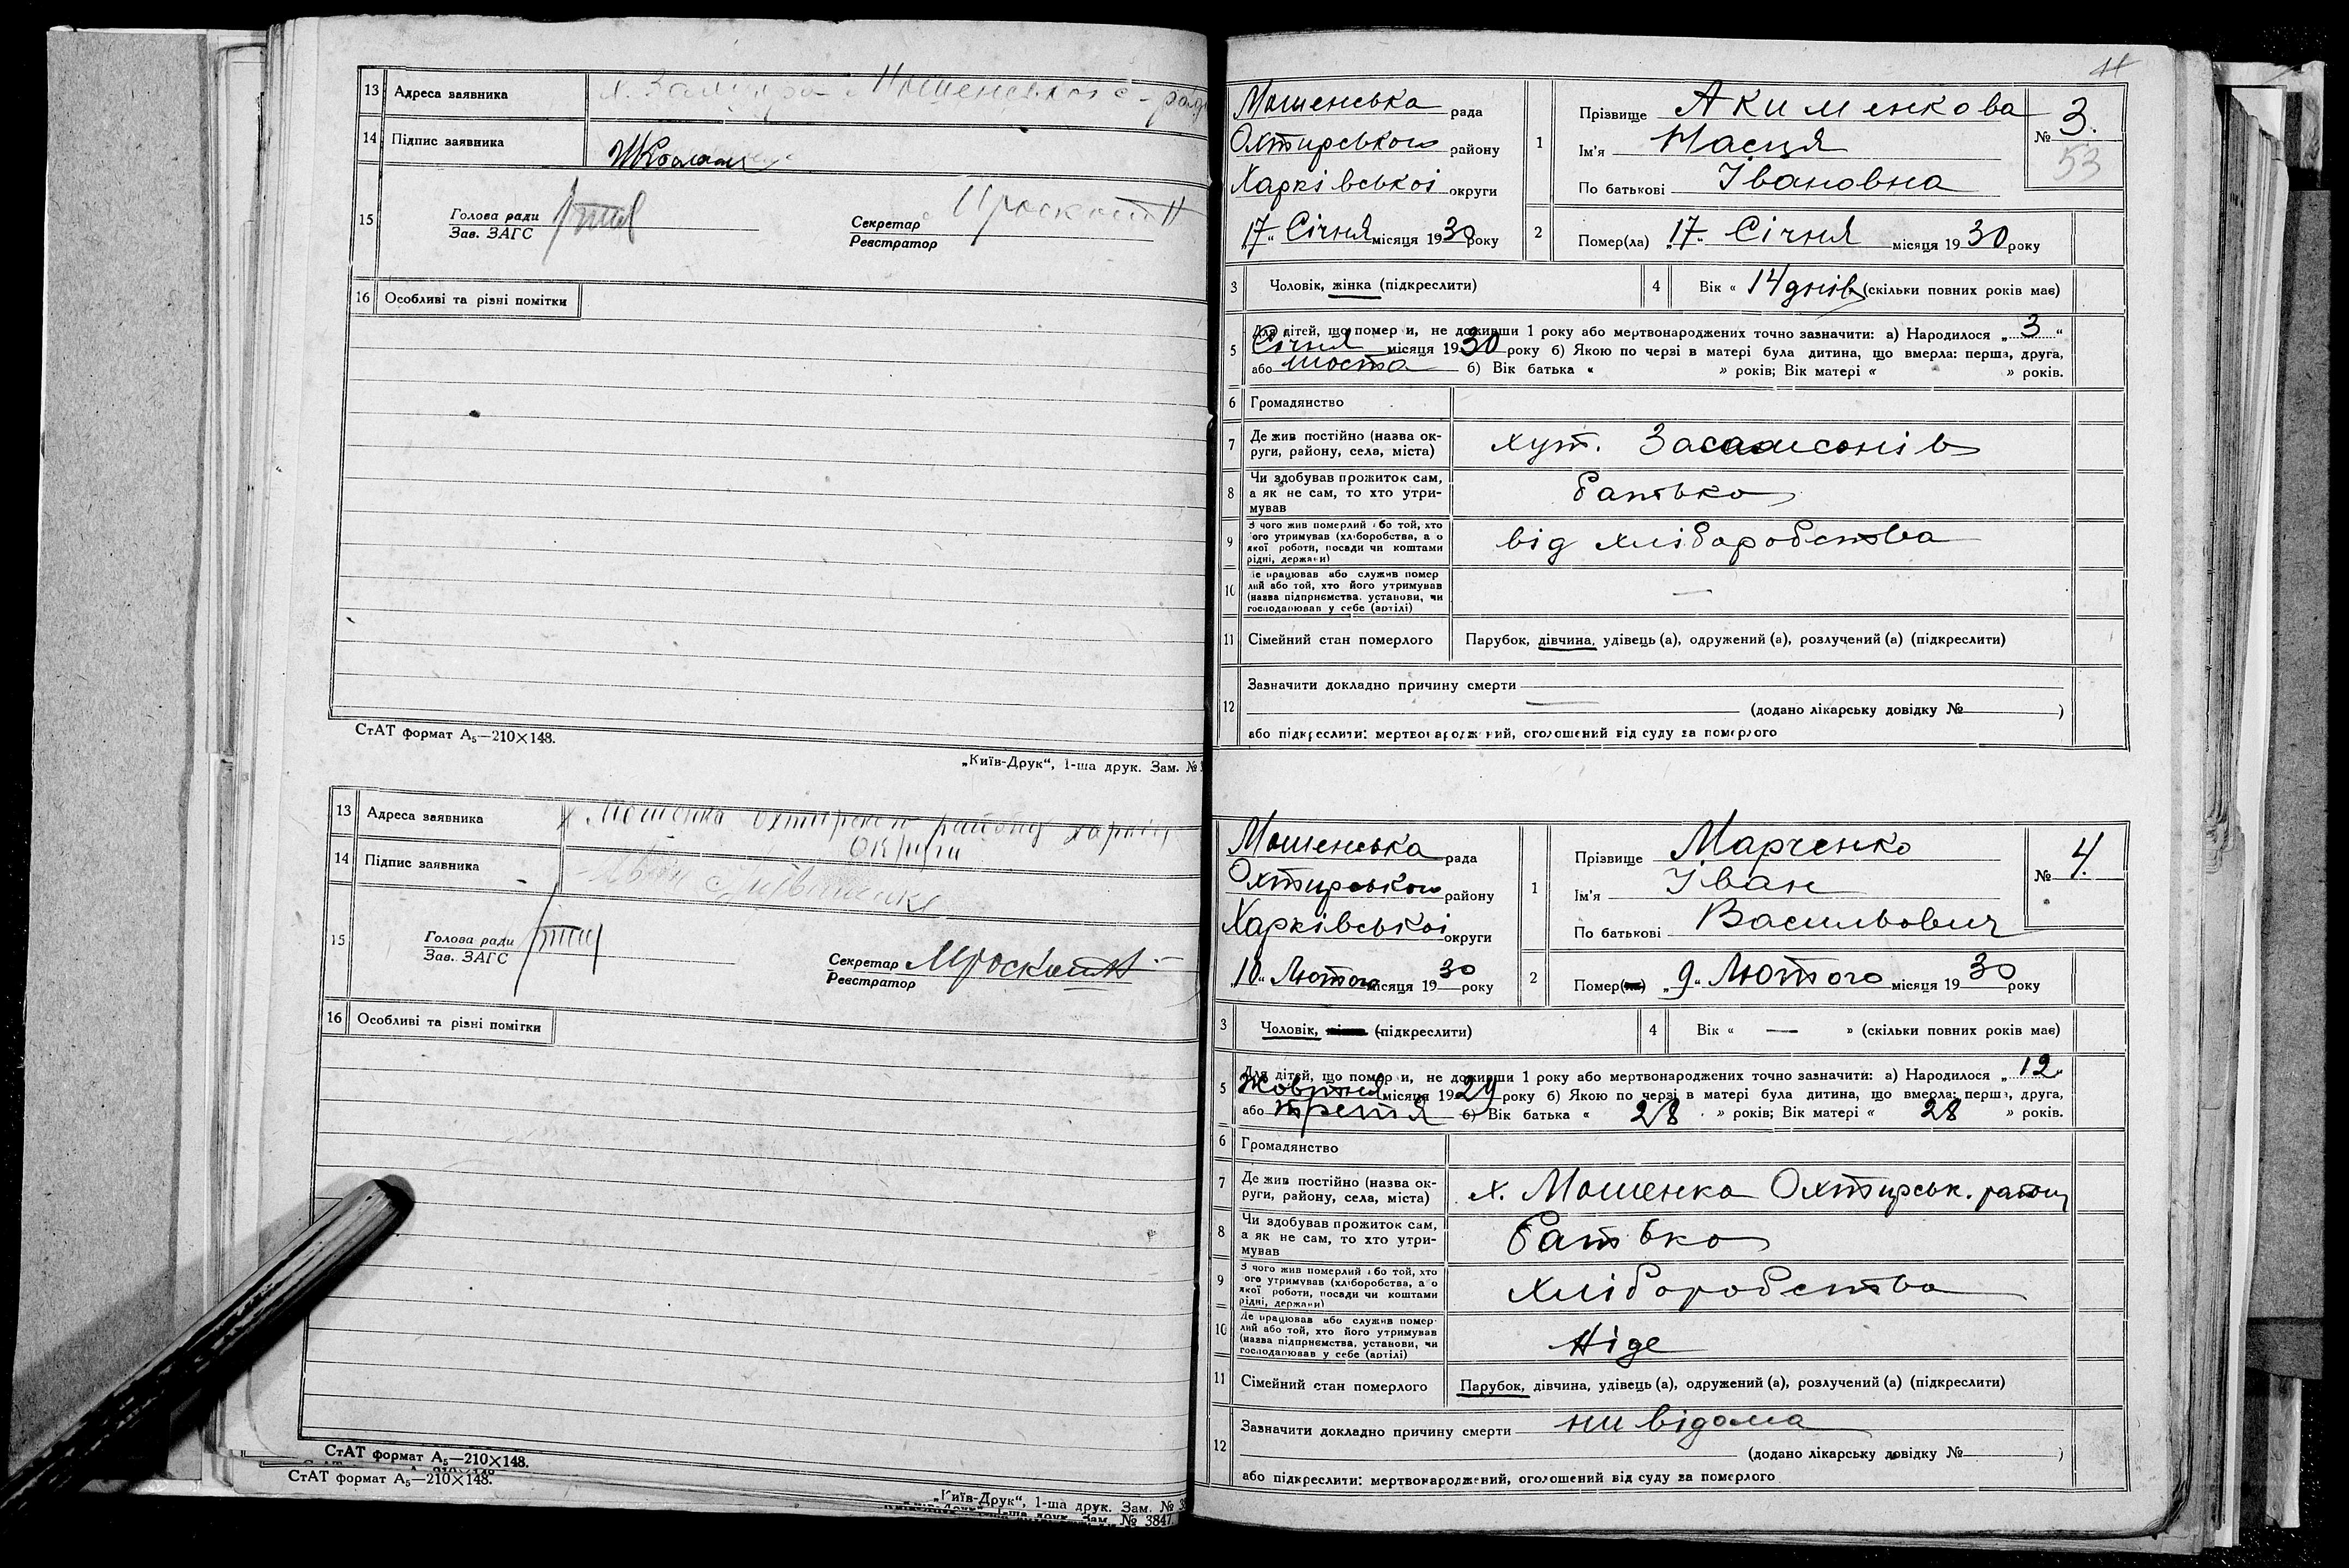 13 Адреса заявника
14 Підпис заявника
15 Голова ради
Зав. ЗАГС
Секретар
Реєстратор
16 Особливі та різні помітки
СтАТ формат А5—210×148.
„Київ-Друк“, 1-ша друк. Зам. №
13 Адреса заявника х. Мошенка
округи
14 Підпис заявника
15 Голова ради
Зав. ЗАГС
Секретар
Реєстратор
16 Особливі та різні помітки
СтАТ формат А5—210×148.
СтАТ формат А5—210×148.
„Київ-Друк“, 1-ша друк. Зам. №
Зам. № 3847.
11
Мошенська рада
Охтирського району
Харківської округи
„17“ Січня місяця 1930 року
1 Прізвище Акименкова
Ім'я Насця
По батькові Івановна
№ 3.
53
2 Помер(ла) „17“ Січня місяця 1930 року
3 Чоловік, жінка (підкреслити)
4 Вік « 14 днів (скільки повних років має)
5 Для дітей, що помер и, не доживши 1 року або мертвонароджених точно зазначити: а) Народилося „3“
Січня місяця 1930 року б) Якою по черзі в матері була дитина, що вмерла: перша, друга,
або шоста б) Вік батька « » років; Вік матері « » років.
6 Громадянство
7 Де жив постійно (назва ок-
руги, району, села, міста)
хут.
8 Чи здобував прожиток сам,
а як не сам, то хто утри-
мував
батько
9 З чого жив померлий або той, хто
ого утримував (хліборобства, а о
якої роботи, посади чи коштами
рідні, держави)
від хліборобства
10 Де працював або служив помер
лий або той, хто його утримував
(назва підприємства, установи, чи
господарював у себе (артілі)
—
11 Сімейний стан померлого Парубок, дівчина, удівець (а), одружений (а), розлучений (а) (підкреслити)
12 Зазначити докладно причину смерти
— (додано лікарську довідку № )
або підкреслити: мертвонароджений, оголошений від суду за померлого
Мошенська рада
Охтирського району
Харківської округи
„10“ Лютого місяця 1930 року
1 Прізвище Марченко
Ім'я Іван
По батькові Васильович
№ 4.
2 Помер(ла) „9“ Лютого місяця 1930 року
3 Чоловік, жінка (підкреслити)
4 Вік « — » (скільки повних років має)
5 Для дітей, що помер и, не доживши 1 року або мертвонароджених точно зазначити: а) Народилося „12“
Жовтня місяця 1929 року б) Якою по черзі в матері була дитина, що вмерла: перша, друга,
або третя б) Вік батька « 28 » років; Вік матері « 28 » років.
6 Громадянство
7 Де жив постійно (назва ок-
руги, району, села, міста)
х. Мошенка Охтирськ. району
8 Чи здобував прожиток сам,
а як не сам, то хто утри-
мував
батько
9 З чого жив померлий або той, хто
ого утримував (хліборобства, а о
якої роботи, посади чи коштами
рідні, держави)
хліборобства
10 Де працював або служив помер
лий або той, хто його утримував
(назва підприємства, установи, чи
господарював у себе (артілі)
Ніде
11 Сімейний стан померлого Парубок, дівчина, удівець (а), одружений (а), розлучений (а) (підкреслити)
12 Зазначити докладно причину смерти ни відома
(додано лікарську довідку № )
або підкреслити: мертвонароджений, оголошений від суду за померлого